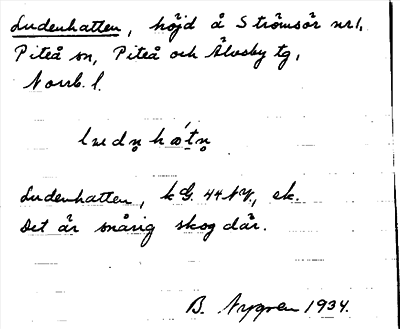 Ludenhatten, höjd å Strömsör nr 1,
Piteå sn, Piteå och Älvsby tg,
Norrb. l.
Ludenhatten, k G. 44 NV., ek.
Det är snårig skog där.
B. Nygren 1934.